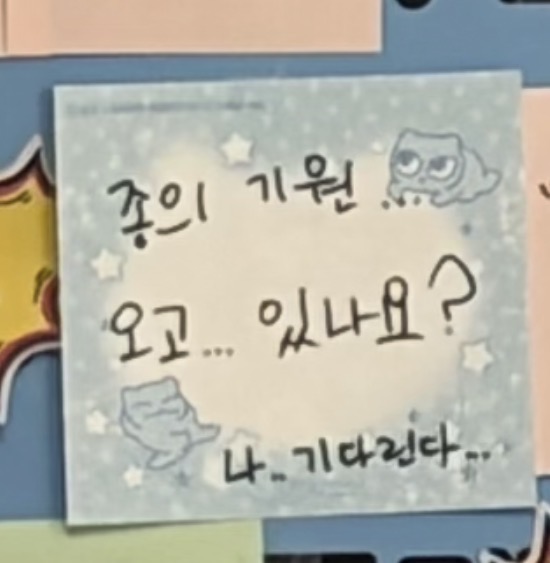 종의 기원...
오고... 있나요?
나.. 기다린다...